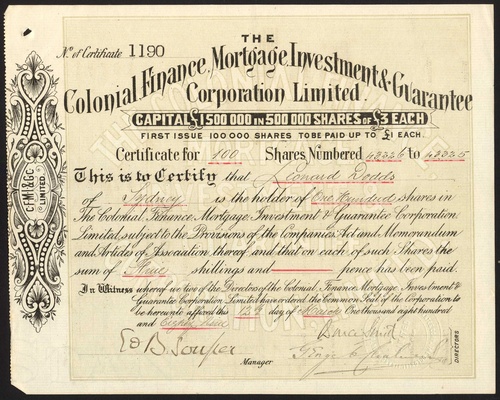 THE
No. of Certificate 1190
Colonial Finance, Mortgage, Investment & Guarantee
Corporation Limited.
CAPITAL £1500000 IN 500000 SHARES OF £3 EACH
FIRST ISSUE 100000 SHARES TO BE PAID UP TO £1 EACH.
Certificate for 100 Shares Numbered to
This is to Certify that Leonard Dodds
of Sydney is the holder of One Hundred shares in
The Colonial Finance, Mortgage, Investment & Guarantee Corporation
Limited, subject to the Provisions of the Companies Act and Memorandum
and Articles of Association thereof, and that on each of such Shares the
sum of shillings and pence has been paid.
In Witness whereof we two of the Directors of the Colonial Finance, Mortgage, Investment &
Guarantee Corporation Limited have ordered the Common Seal of the Corporation to
be hereunto affixed this day of March One thousand eight hundred
and
Manager
DIRECTORS
C.F.M.I & G.C.
LIMITED.